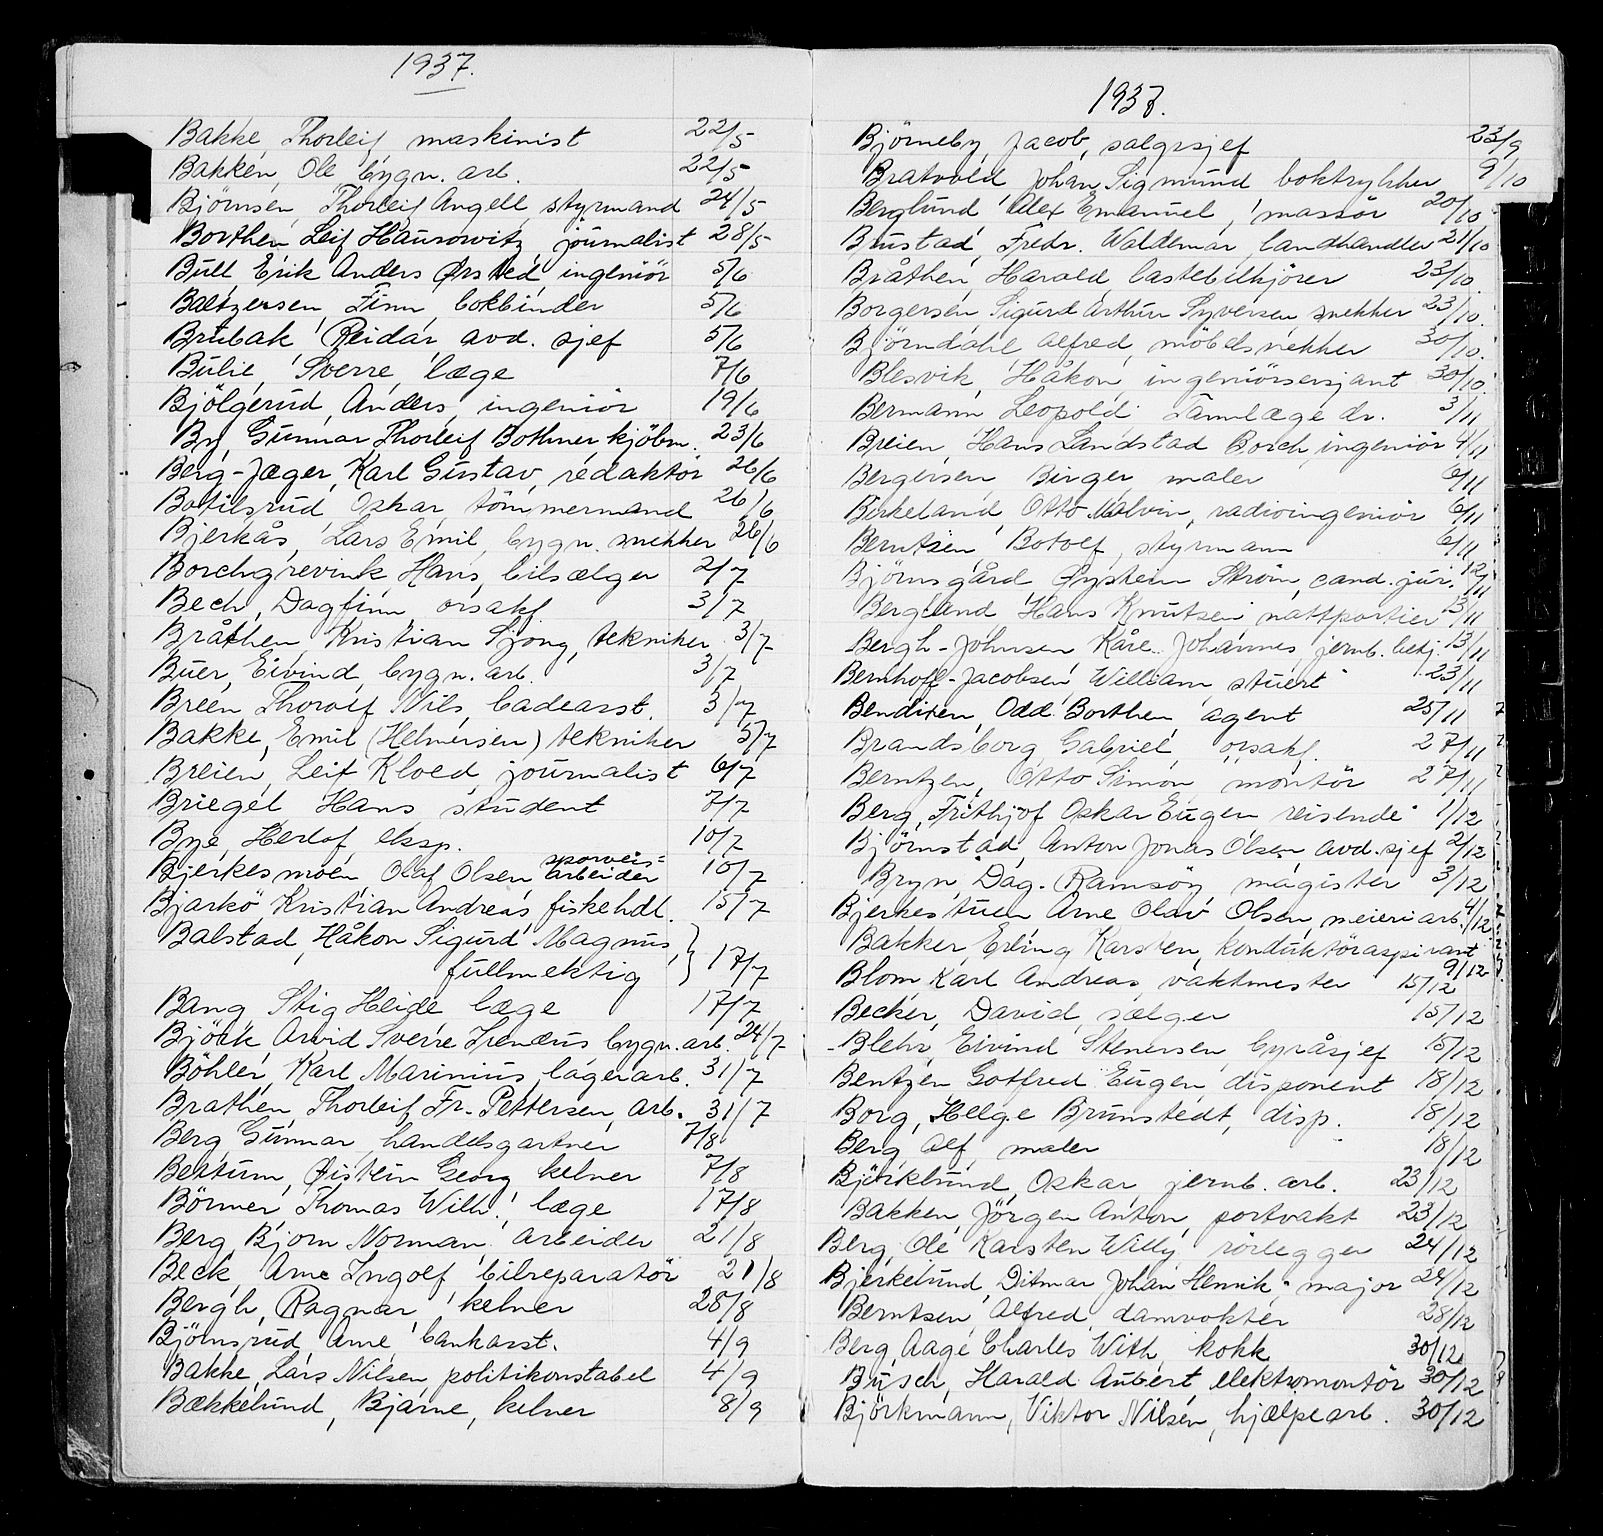 1937.
Bakke, Thorleif maskinist 22/5
Bakken, Ole bygn. arb. 22/5
Björnsen, Thorleif Angell styrmand 24/5
Borthen Leif Hausowitz journalist 28/5
Bull, Erik Anders Ørsted, ingeniör 5/6
Baltzersen, Finn, bokbinder 5/6
Brubak Reidar avd. sjef 5/6
Bulie, Sverre, læge 7/6
Bjölgerud, Anders, ingeniör 19/6
By, Gunnar Thorleif Bothner kjöbm. 23/6
Berg-Jæger, Karl Gustav, redaktör 26/6
Botilsrud Oskar tömmermand 26/6
Bjerkås, Lars Emil, bygn. snekker 26/6
Borchgrevink Hans, bilsælger 2/7
Bech, Dagfinn orsakf 3/7
Bråthen, Kristian Sjong, tekniker 3/7
Buer, Eivind, bygn. arb. 3/7
Breen Thorolf Nils, badeasst. 3/7
Bakke, Emil (Helmersen) tekniker 5/7
Breien, Leif Kloed, journalist 6/7
Briegel Hans, student 7/7
Bye, Herlof, eksp. 10/7
Bjerkesmoen Olaf Olsen sporveis=arbeider 10/7
Bjarkö, Kristian Andreas fiskehdl. 15/7
Balstad, Håkon Sigurd Magnus,
fullmektig 17/7
Bang, Stig Heide læge 17/7
Björk, Arvid Sverre Irenæus bygn. arb. 24/7
Böhler, Karl Marinius, lagerarb. 31/7
Brathen, Thorleif Fr. Pettersen, arb. 31/7
Berg Gunnar, handelsgartner 7/8
Bettum, Øistein Georg kelner 7/8
Börmer Thomas Wilh., læge 17/8
Berg Bjorn Norman, arbeider 21/8
Beck, Arne Ingolf bilreparatör 21/8
Bergh, Ragnar, kelner 28/8
Björnsrud, Arne, bankasst. 4/9
Bakke, Lars Nilsen politikonstabel 4/9
Bækkelund, Bjarne, kelner 8/9
1937.
Björneby, Jacob, salgssjef 23/9
Bratvold, Johan Sigmund boktrykker 9/10
Berglund Alex Emanuel, massör 20/10
Brustad, Fredr. Waldemar, landhandler 21/10
Bråthen, Harald lastebilkjörer 23/10
Borgersen Sigurd Arthur Syversen snekker 23/10
Björndahl Alfred, möbelsnekker 30/10
Blesvik, Håkon, ingeniörsersjant 30/10
Bermann Leopold Tannlæge dr. 3/11
Breien, Hans Landstad Borch, ingeniör 4/11
Bergersen Birger maler 6/11
Birkeland, Otto Malvin, radioingeniör 6/11
Berntsen, Botolf, styrmann 6/11
Björnsgård Øystein Ström, cand. jur. 12/11
Bergland Hans Knutsen nattportier 13/11
Bergh-Johnsen Kåre Johannes jernb. betj. 13/11
Bernhoff-Jacobsen, William stuert 23/11
Bendixen, Odd Borthen, agent 25/11
Brandsborg Gabriel, örsakf. 27/11
Berntzen, Otto Simon, montör 27/11
Berg, Frithjof Oskar Eugen reisende 1/12
Björnstad, Anton Jonas Olsen, avd. sjef 2/12
Bryn, Dag. Ramsöy magister 3/12
Bjerkestuen Arne Olav Olsen, meieriarb. 4/12
Bakker, Erling Karsten, konduktöraspirant 9/12
Blom Karl Andreas, vaktmester 15/12
Becker, David, sælger 15/12
Blehr, Eivind Stenersen, byråsjef 15/12
Bentzen Gotfred Eugen, disponent 18/12
Borg, Helge Brunstedt, disp. 18/12
Berg Alf, maler 18/12
Björklund, Oskar, jernb. arb. 23/12
Bakken, Jörgen Anton, portvakt 23/12
Berg, Ole Karsten Willy rörlegger 24/12
Bjerkelund, Ditmar Johan Henrik, major 24/12
Berntsen, Alfred, damvokter 28/12
Berg, Aage Charles With, kokk 30/12
Busch, Harald Aubert, elektromontör 30/12
Björkmann, Viktor Nilsen, hjælpearb. 30/12